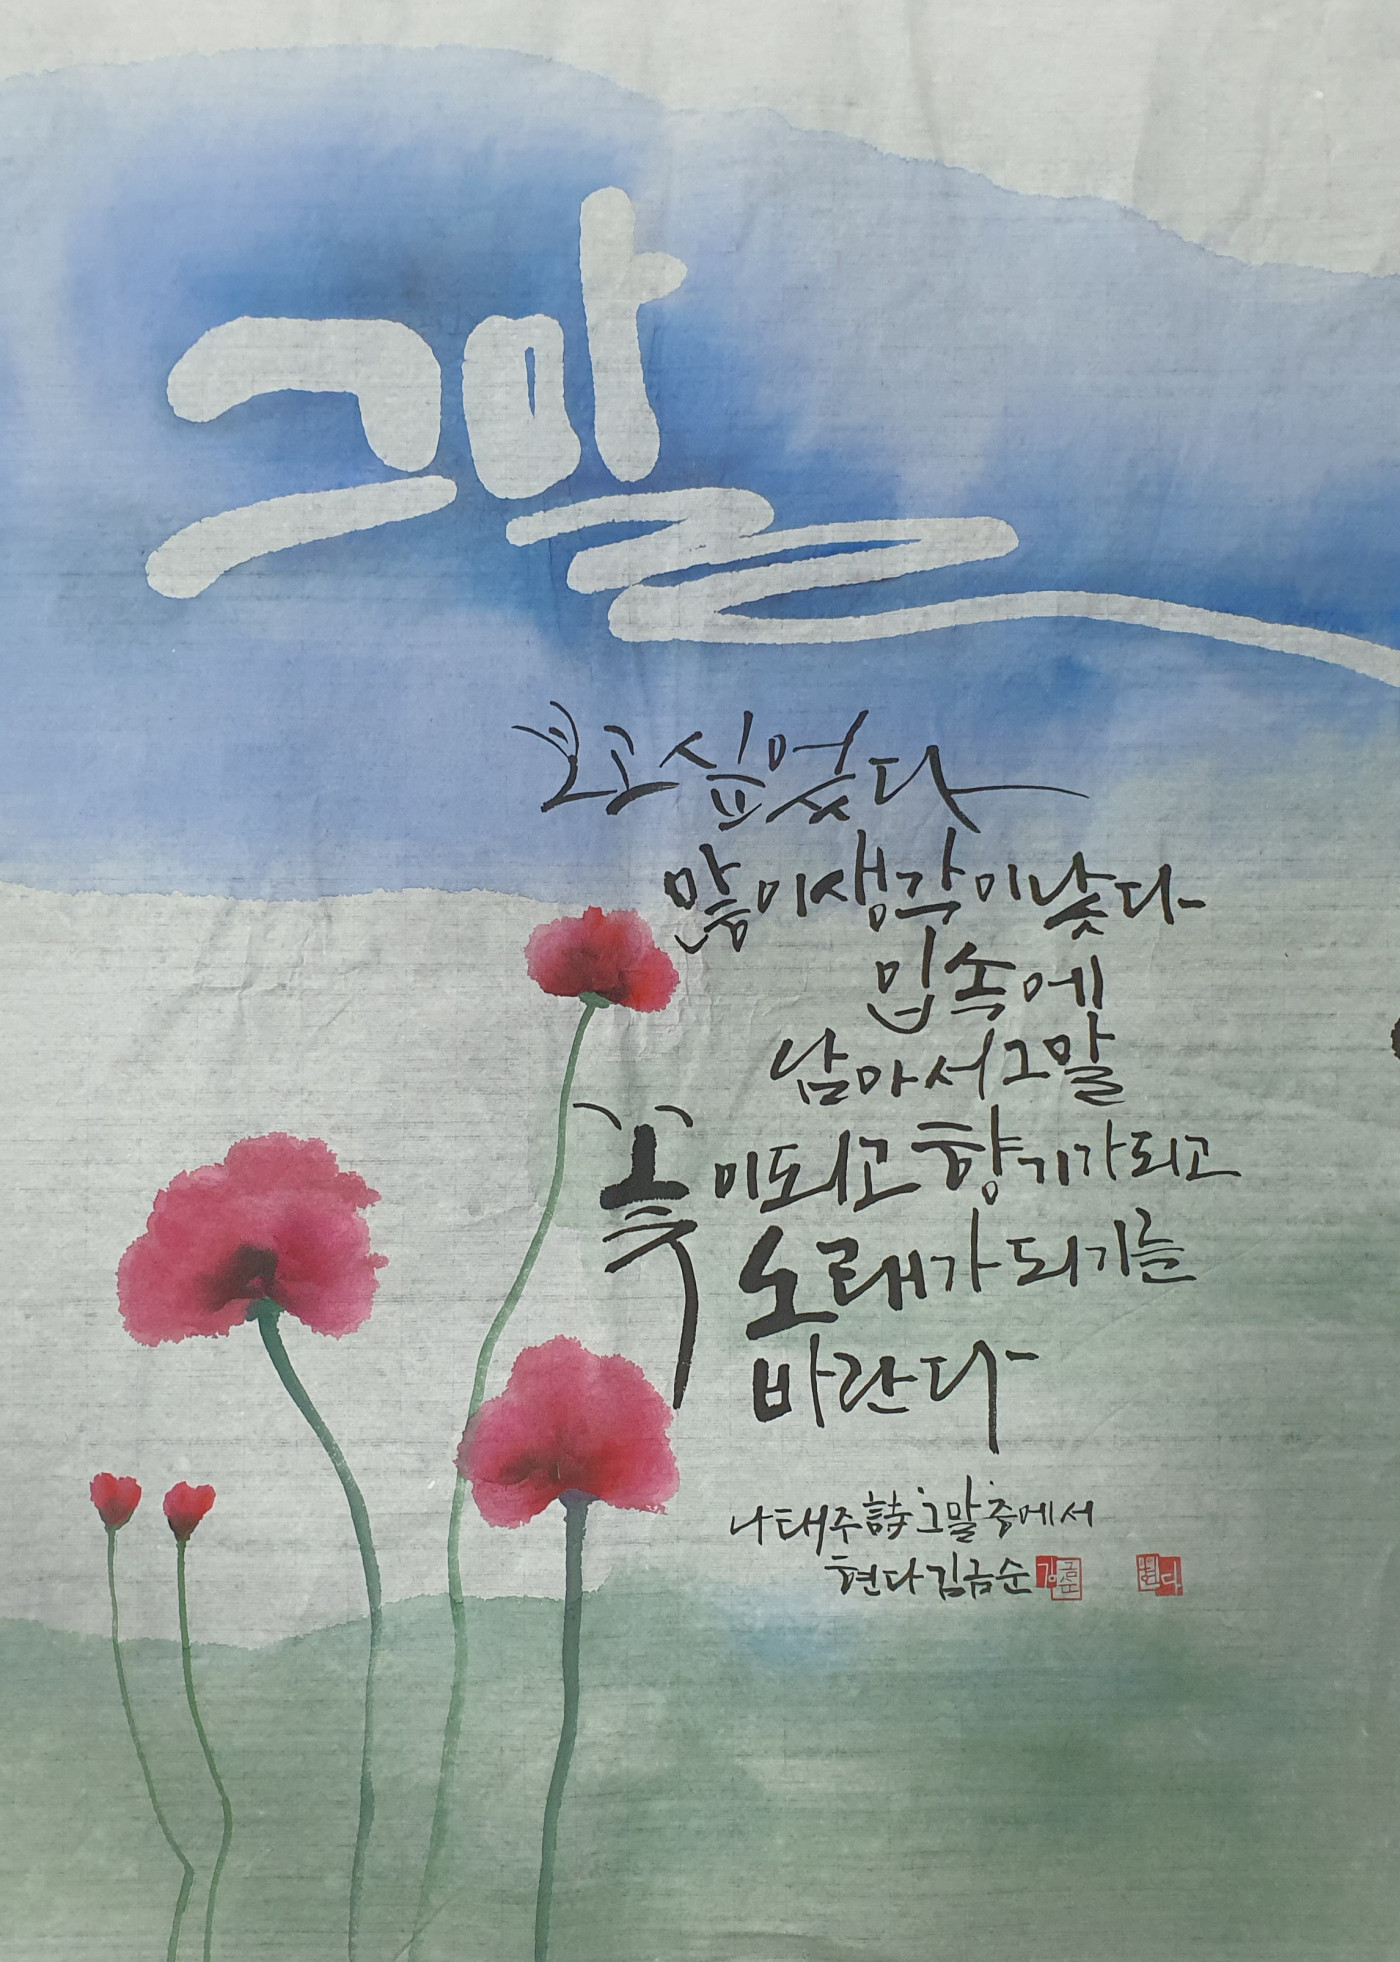 그 말
보고 싶었다
많이 생각이 났다
입 속에
남아서 그 말
꽃이 되고 향기가 되고
노래가 되기를
바란다
나태주 詩 '그 말' 중에서
현다 김금순
김금순
현다